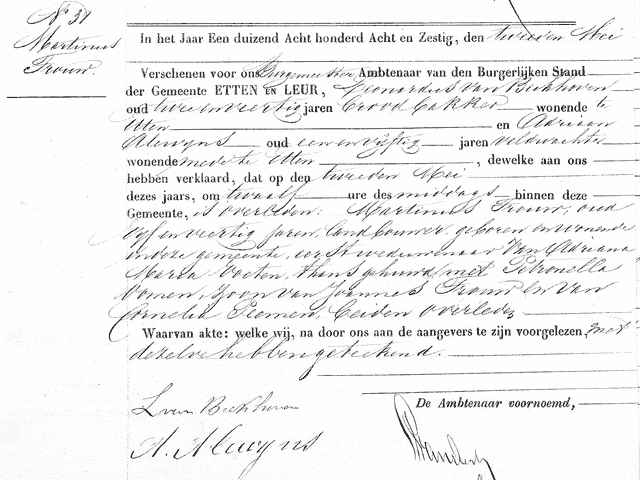 No 31
Martinus
Trouw.
In het Jaar Een duizend Acht honderd Acht en Zestig, den tweeden Mei
Verschenen voor ons Burgemeester Ambtenaar van den Burgerlijken Stand
der Gemeente ETTEN EN LEUR, Leonardus van Beckhoven
oud twee en veertig jaren Brood bakker wonende te
Etten en Adriaan
Alewyns oud een en vijftig jaren veldwachter
wonende mede te Etten, dewelke aan ons
hebben verklaard, dat op den tweeden Mei
dezes jaars, om twaalf ure des middags binnen deze
Gemeente, is overleden. Martinus Trouw, oud
vyf en veertig jaren, landbouwer, geboren en wonende
in deze gemeente, eerst weduwenaar van Adriana
Maria Voeten, thans gehuwd met Petronella
Zoon van Joannes Trouw en van
Cornelia beiden overleden
Waarvan akte: welke wij, na door ons aan de aangevers te zijn voorgelezen, met
dezelve hebben geteekend.
L van Beckhoven
De Ambtenaar voornoemd,
A. Alewyns